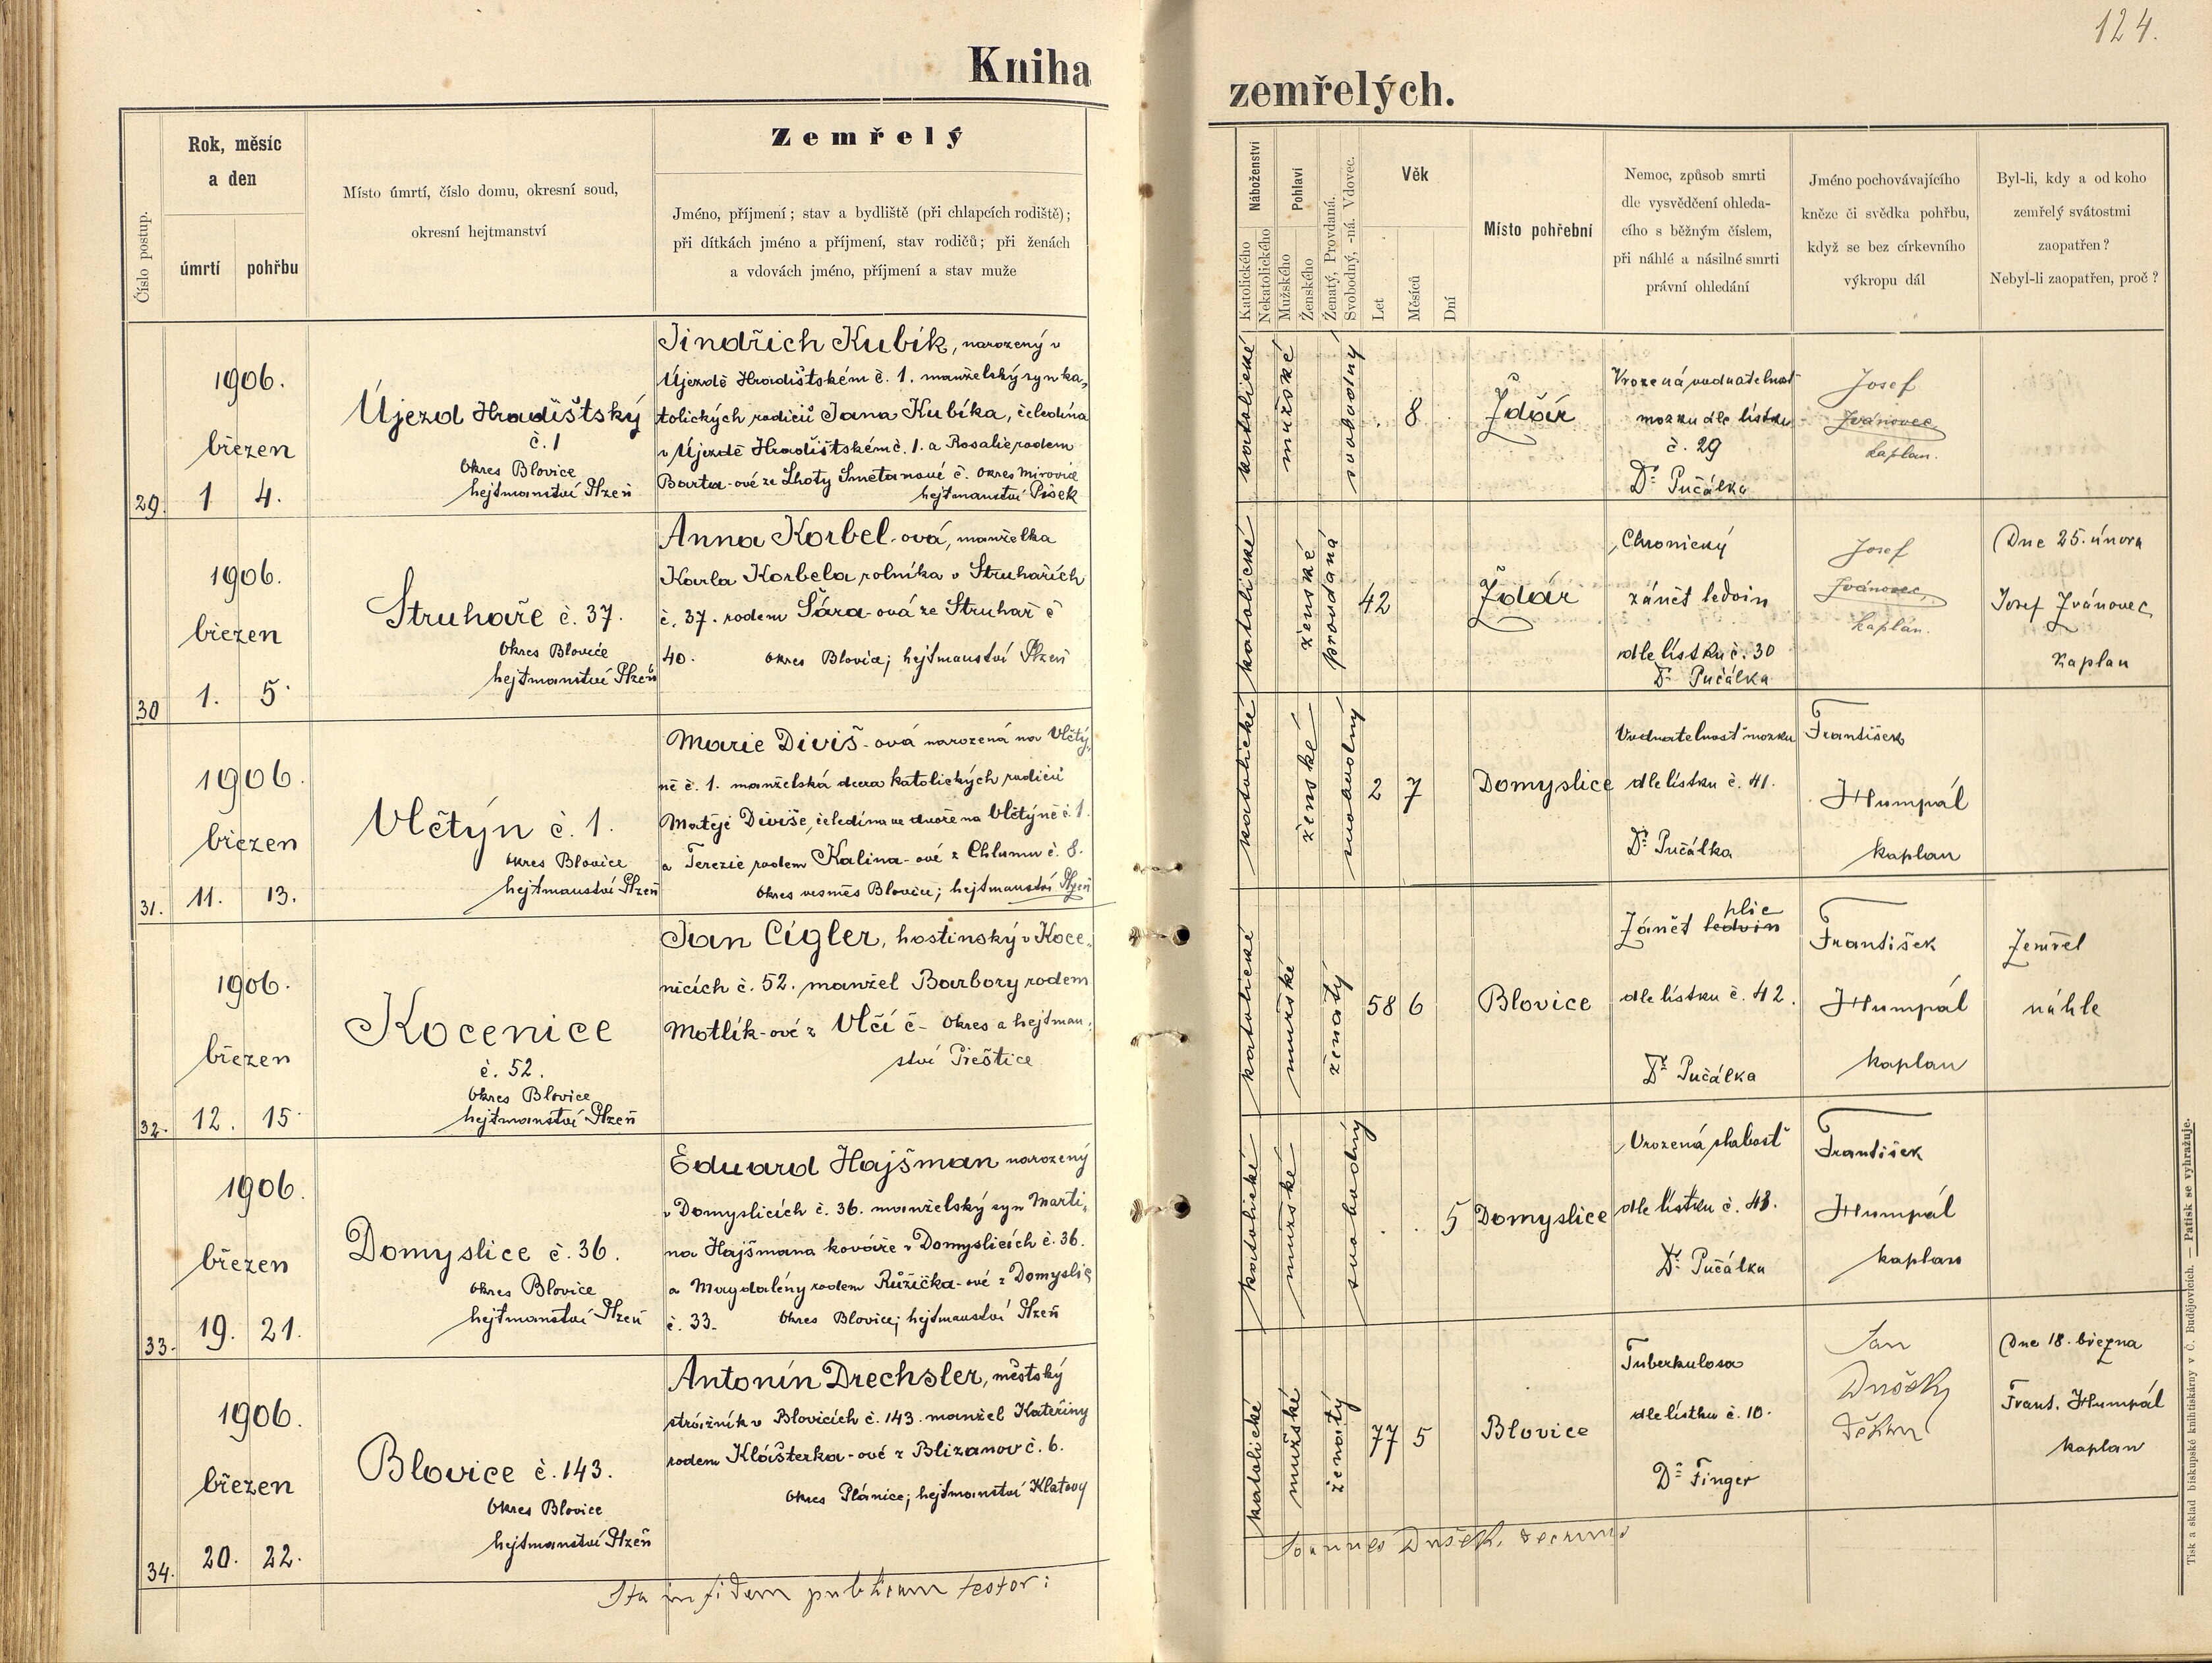 124.
Kniha
zemřelých.
Číslo postup.
Rok, měsíc
a den
úmrtí
pohřbu
Místo úmrtí, číslo domu, okresní soud,
okresní hejtmanství
Zemřelý
Jméno, příjmení; stav a bydliště (při chlapcích rodiště);
při dítkách jméno a příjmení, stav rodičů; při ženách
a vdovách jméno, příjmení a stav muže
Náboženství
Katolického
Nekatolického
Pohlaví
Mužského
Ženského
Ženatý, Provdaná.
Svobodný, -ná. Vdovec.
Věk
Let
Měsíců
Dní
Místo pohřební
Nemoc, způsob smrti
dle vysvědčení ohleda-
cího s běžným číslem,
při náhlé a násilné smrti
právní ohledání
Jméno pochovávajícího
kněze či svědka pohřbu,
když se bez církevního
výkropu dál
Byl-li, kdy a od koho
zemřelý svátostmi
zaopatřen?
Nebyl-li zaopatřen, proč?
29.
1906.
březen
1 4.
Újezd Hradištský
č. 1
Okres Blovice
hejtmanství Plzeň
Jindřich Kubík, narozený v
Újezdě Hradištském č. 1. manželský syn ka-
tolických rodičů Jana Kubíka, čeledína
v Újezdě Hradištském č. 1. a Rosalie rodem
Barta-ové ze Lhoty Smetanové č. okres Mirovice
hejtmanství Písek
katolické
mužské
svobodný
8
Ždár
Vrozená vodnatelnost
mozku dle lístku
č. 29
Dr. Pučálka
Josef
Jvánovec,
kaplan.
30
1906.
březen
1. 5.
Struhaře č. 37.
Okres Blovice
hejtmanství Plzeň
Anna Korbel-ová, manželka
Karla Korbela rolníka v Struhařích
č. 37. rodem Šára-ová ze Struhař č
40. okres Blovice; hejtmanství Plzeň
katolické
ženské
provdaná
42
Ždár
Chronický
zánět ledvin
dle lístku č. 30
Dr. Pučálka
Josef
Jvánovec,
kaplan.
Dne 25. února
Josef Jvánovec
kaplan
31.
1906.
březen
11. 13.
Vlčtýn č. 1.
okres Blovice
hejtmanství Plzeň
Marie Diviš-ová narozená na Vlčtý-
ně č. 1. manželská dcera katolických rodičů
Matěje Diviše, čeledína ve dvoře na Vlčtýně č. 1.
a Terezie rodem Kalina-ové z Chlumu č. 8.
okres vesměs Blovice; hejtmanství Plzeň
katolické
ženské
svobodný
2 7
Domyslice
Vodnatelnost mozku
dle lístku č. 41.
Dr. Pučálka
František
Humpál
kaplan
32.
1906.
březen
12. 15
Kocenice
č. 52.
Okres Blovice
hejtmanství Plzeň
Jan Cígler, hostinský v Koce-
nicích č. 52. manžel Barbory rodem
Motlík-ové z Vlčí č- okres a hejtman-
ství Přeštice
katolické
mužské
ženatý
58 6
Blovice
plic
Zánět ledvin
dle lístku č. 42.
Dr. Pučálka
František
Humpál
kaplan
Zemřel
náhle
33.
1906.
březen
19. 21.
Domyslice č. 36.
okres Blovice
hejtmanství Plzeň
Eduard Hajšman narozený
v Domyslicích č. 36. manželský syn Marti-
na Hajšmana kováře v Domyslicích č. 36.
a Magdalény rodem Růžička-ové z Domyslic
č. 33. okres Blovice; hejtmanství Plzeň
katolické
mužské
svobodný
5
Domyslice
Vrozená slabost
dle lístku č. 43.
Dr. Pučálka
František
Humpál
kaplan
34.
1906.
březen
20. 22.
Blovice č. 143.
Okres Blovice
hejtmanství Plzeň
Antonín Drechsler, městský
strážník v Blovicích č. 143. manžel Kateřiny
rodem Klášterka-ové z Blizanov č. 6.
okres Plánice; hejtmanství Klatovy
katolické
mužské
ženatý
77 5
Blovice
Tuberkulosa
dle lístku č. 10.
Dr. Finger
Jan
Dušek,
děkan
Dne 18. března
Frant. Humpál
kaplan
Ita in fidem publicam testor:
Joannes Dušek, decanus
Tisk a sklad biskupské knihtiskárny v Č. Budějovicích. — Patisk se vyhražuje.